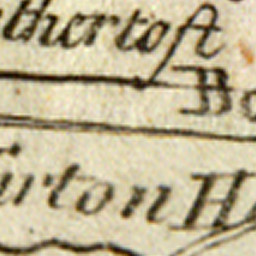 thertoft
Bo
irton H